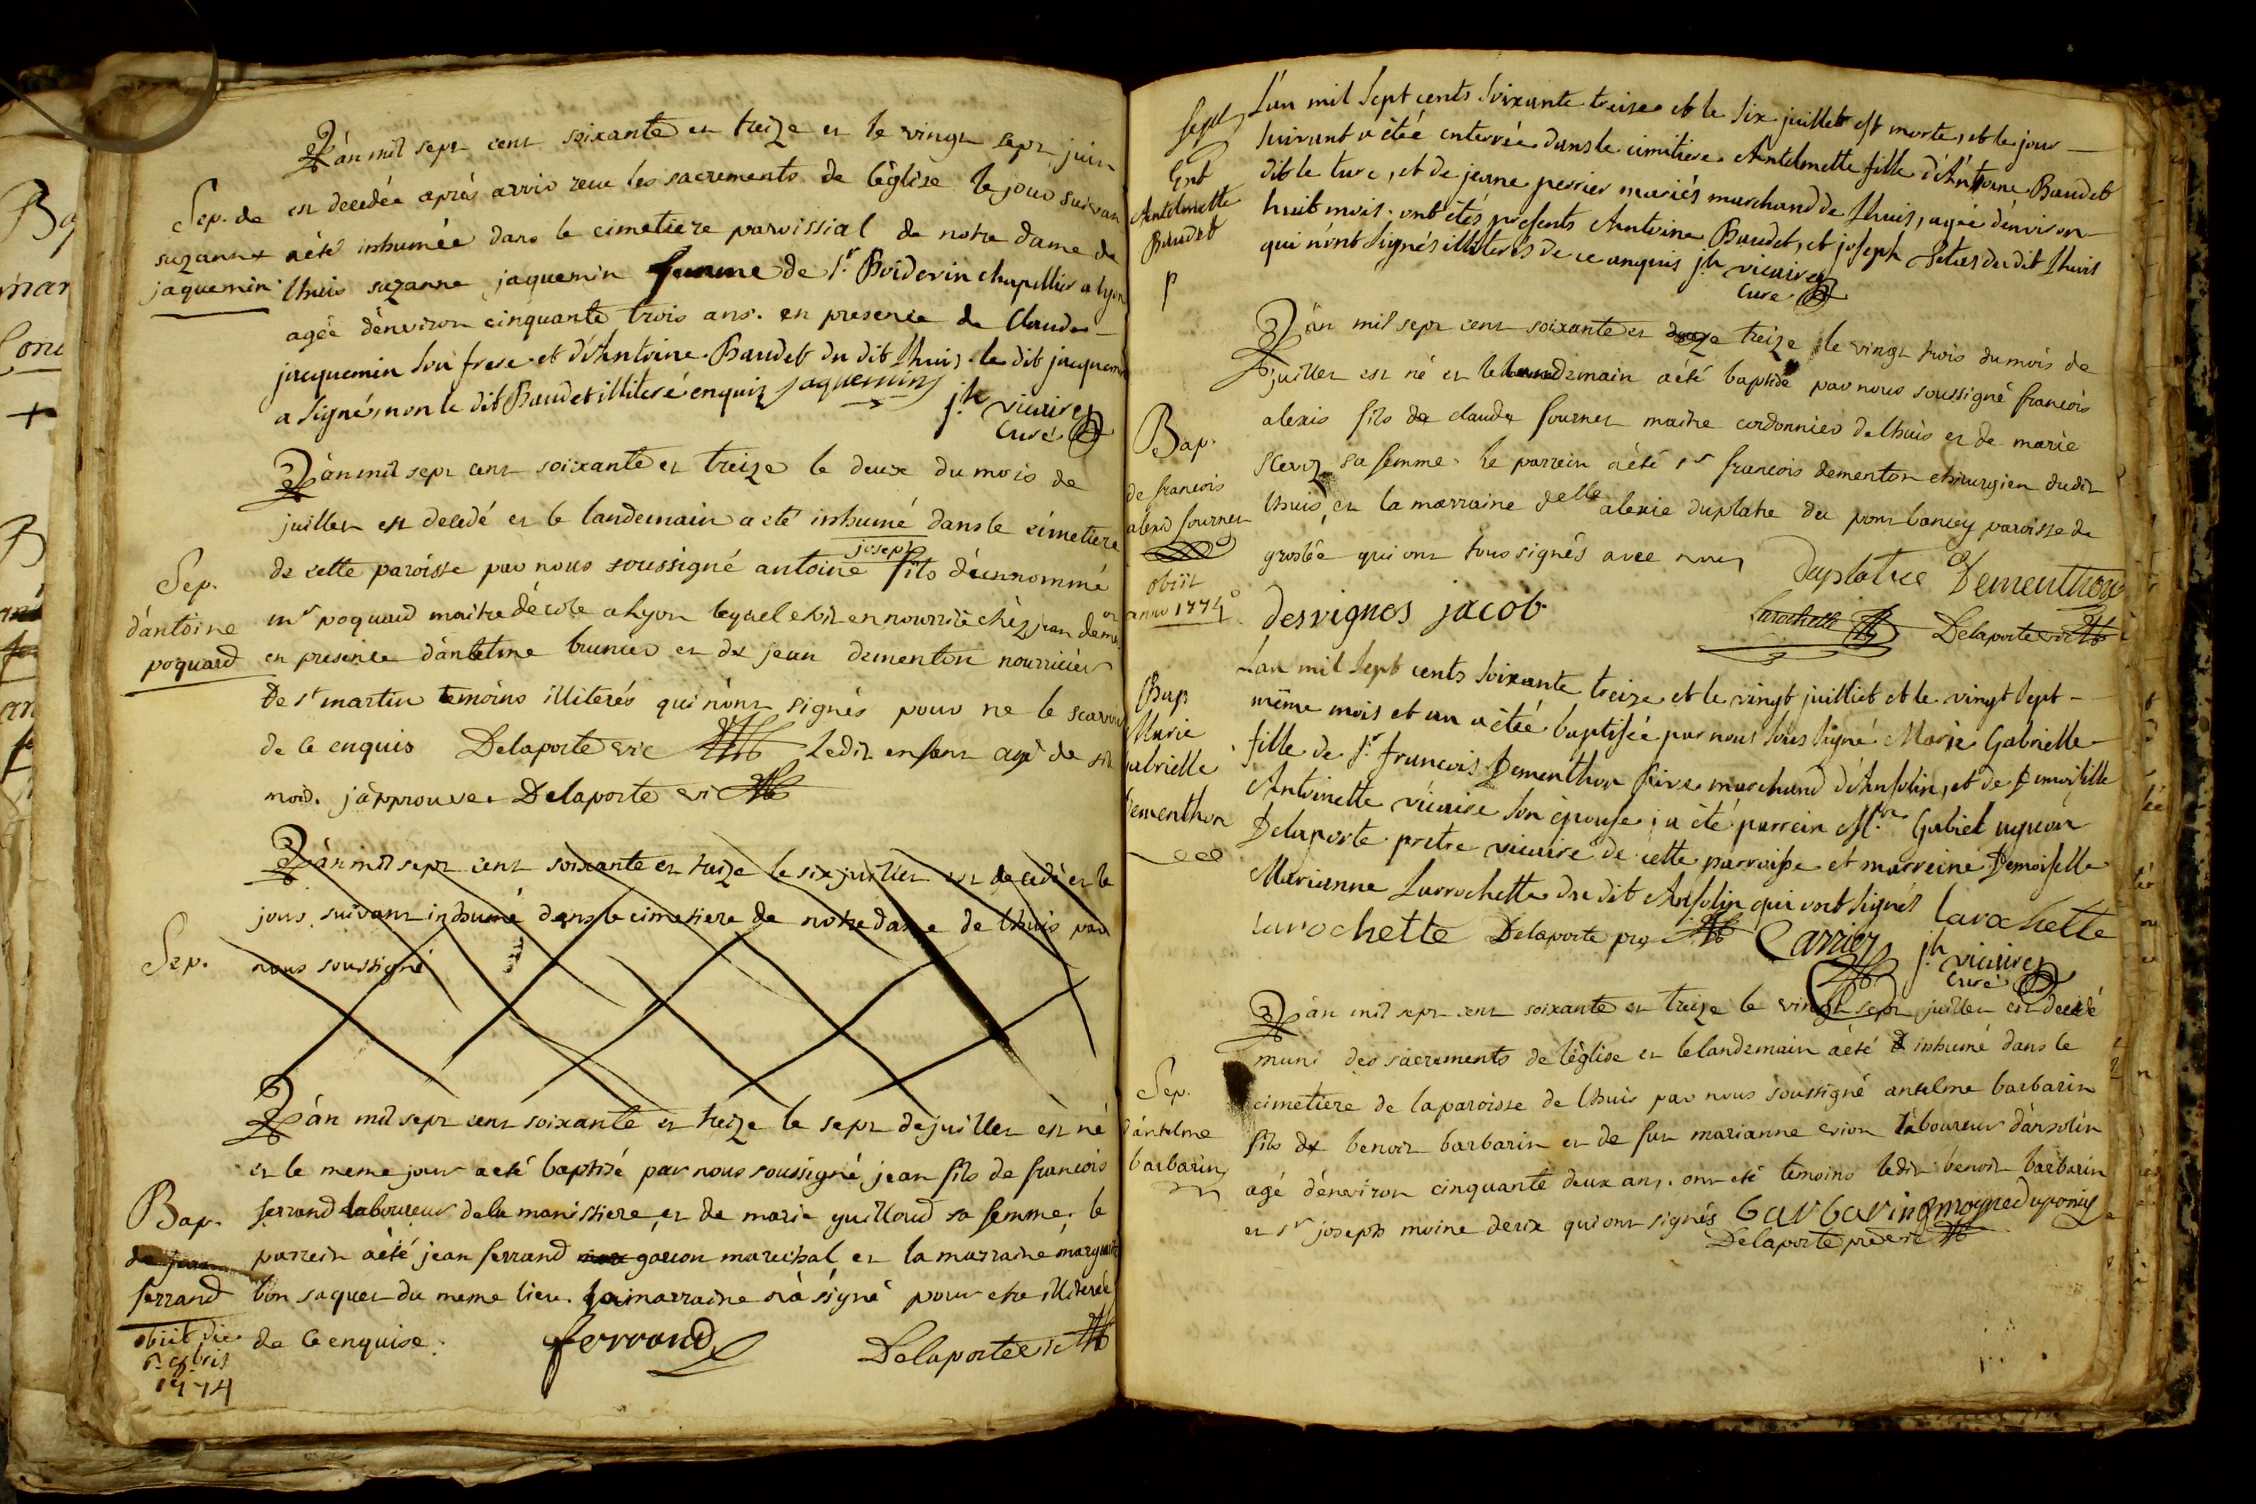 L'án mil sept cent soixante et treize et le vingt sept juin
Sep. de
suzanne
jaquemin
est decedée aprés avoir reçu les sacrements de l'église le jour suivant
a été inhumée dans le cimetiere paroissial de notre dame de
lhuis suzanne jaquemin femme de Sr. Boidevin chapellier a lyon
agée d'environ cinquante trois ans. en presence de Claude
jacquemin son frere et d'Antoine Baudet du dit Lhuis. le dit jacquemin
a signé, non le dit Baudet illiteré enquis jaquemin
jh vicaire
Curé
L'án mil sept cent soixante et treize le deux du mois de
juillet est decedé et le landemain a eté inhumé dans le cimetiere
joseph
Sep.
d'antoine
poquard
de cette paroisse par nous soussigné antoine fils d'un nommé
mr poquard maitre d'école a Lyon lequel etoit en nourrice chèz jean
en presence d'antelme brunier et de jean dementon nourricier
de st martin temoins illiterés qui n'ont signés pour ne le scavoir
de ce enquis Delaporte vic ledit enfant agé de six
mois. j'approuve Delaporte vic
L'án mil sept cent soixante et treize le six juillet est decedé et le
jour suivant inhumé dans le cimetiere de notre dame de lhuis par
Sep.
nous soussigné
L'án mil sept cent soixante et treize le sept de juillet est né
et le meme jour a eté baptisé par nous soussigné jean fils de francois
Bap.
de jean
ferrand
obiit die
1774
ferrand laboureur de la manissiere, et de marie guilloud sa femme. le
parrein a été jean ferrand garcon marechal et la marraine marguerite
bon saquet du meme lieu. la marraine n'a signé pour etre illiterée
de ce enquise.
ferrand
Delaporte vic
Sept
Ent
Antelmette
Baudet
p
L'an mil Sept cents Soixante treize et le Six juillet est morte, et le jour
suivant a étéé enterrée dans le cimitiere Antelmette fille d'Antoine Baudet
dit le turc, et de jeane perrier mariés marchand de Lhuis, agée d'environ
huit mois. ont étés presents Antoine Baudet, et joseph du dit Lhuis
qui n'ont Signés illiterés de ce enquis jh vicaire
Curé
L'án mil sept cent soixante et treize le vingt trois du mois de
juillet est né et le landemain a été baptisé par nous soussigné francois
Bap.
de francois
alexis fournet
obiit
anno 1774
alexis fils de claude fournet maitre cordonnier de lhuis et de marie
sa femme. le parrein a été sr francois dementon chirurgien dudit
lhuis et la marraine delle alexie duplatre du pont bancey paroisse de
groslée qui ont tous signés avec nous Duplatre Dementhon
desvignes jacob
Larochette Delaporte vic
Bap
Marie
gabrielle
Dementhon
L'an mil Sept cents Soixante treize et le vingt juilliet et le vingt Sept
même mois et an a étéé baptisée par nous Sous Signé Marie Gabrielle
fille de Sr. francois Dementhon Sire marchand d'Ansolin, et de Demoiselle
Antoinette vicaire Son épouse; a été parrein Mre Gabriel ugueon
Delaporte pretre vicaire de cette parroisse et marreine Demoiselle
Marianne Larrochette du dit Ansolin qui ont Signés Larochette
Larochette Delaporte Carrier jh vicaire
Curé
L'án mil sept cent soixante et treize le vingt sept juillet est decedé
muni des sacrements de l'église et le landemain a été inhumé dans le
Sep.
d'antelme
barbarin
cimetiere de la paroisse de lhuis par nous soussigné antelme barbarin
fils de benoit barbarin et de fut marianne laboureur d'ansolin
agé d'environ cinquante deux ans. ont eté temoins ledit benoit barbarin
et sr joseph moine qui ont signés barbarin
Delaporte